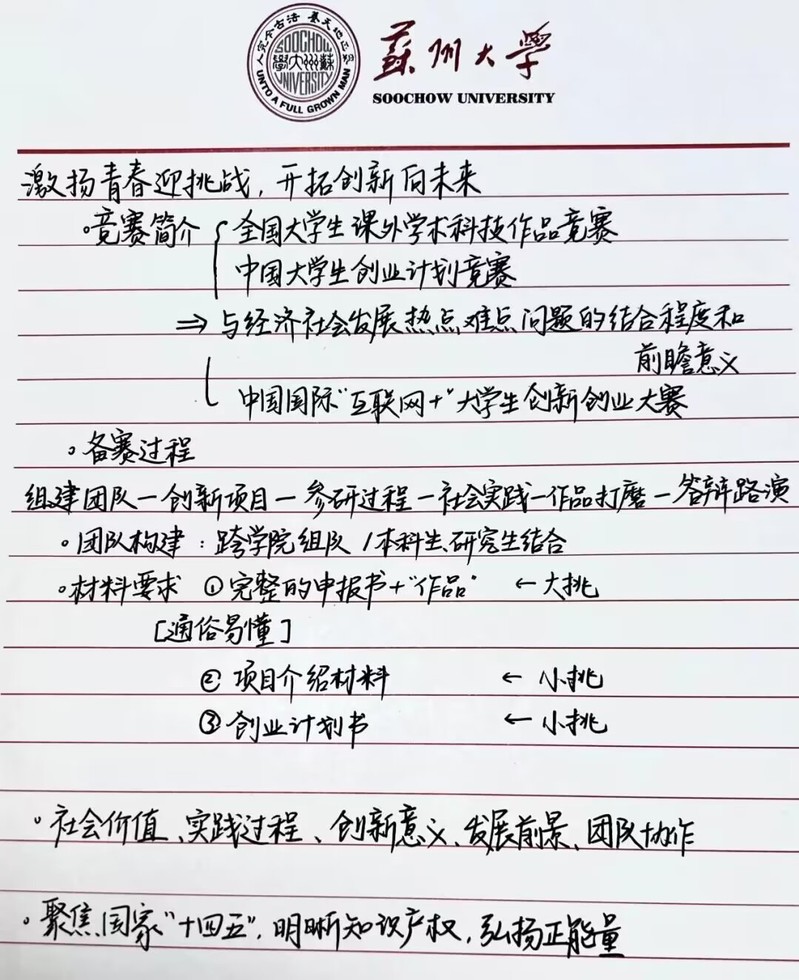 養天地正氣 法古今完人
SOOCHOW
UNIVERSITY
UNTO A FULL GROWN MAN
蘇州大學
SOOCHOW UNIVERSITY
激扬青春迎挑战，开拓创新向未来
·竞赛简介 { 全国大学生课外学术科技作品竞赛
中国大学生创业计划竞赛
⇒ 与经济社会发展热点难点问题的结合程度和
前瞻意义
中国国际"互联网+"大学生创新创业大赛
。备赛过程
组建团队—创新项目—参研过程—社会实践—作品打磨—答辩路演
。团队构建：跨学院组队/本科生、研究生结合
。材料要求 ①完整的申报书+"作品" ←大挑
[通俗易懂]
② 项目介绍材料 ← 小挑
③ 创业计划书 ← 小挑
。社会价值、实践过程、创新意义、发展前景、团队协作
。聚焦国家"十四五"，明晰知识产权，弘扬正能量